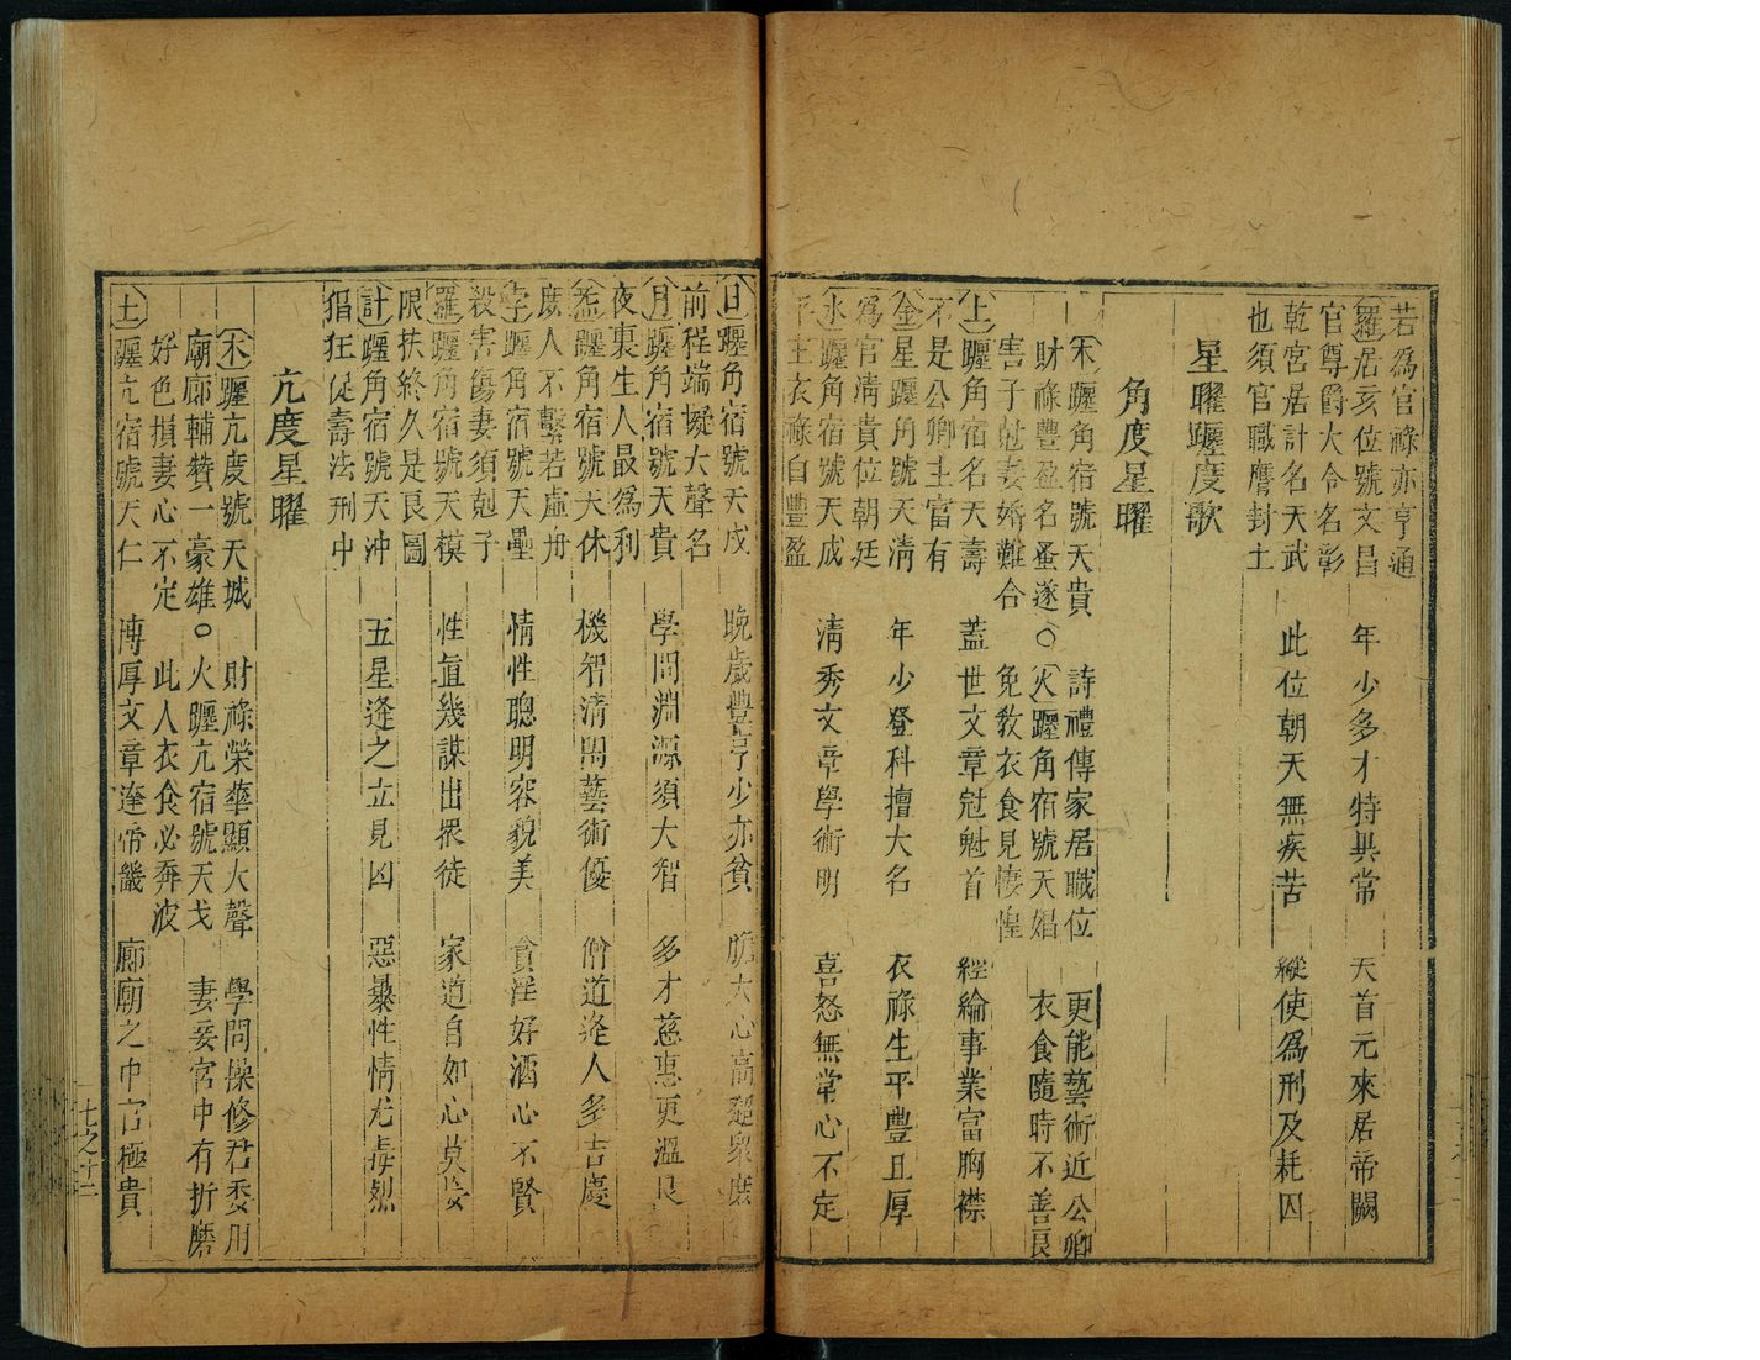 若爲官祿亦亨通
羅居亥位號文昌　年少多才特異常　天首元來居帝闕
官尊爵大令名彰
乾宮居計名天武　此位朝天無疾苦　縱使爲刑及耗囚
也須官職膺封土
星曜躔度歌
角度星曜
木躔角宿號天貴　詩禮傳家居職位　更能藝術近公卿
財祿豐盈名蚤遂○火躔角宿號天娼　衣食隨時不善良
害子尅妻婚難合　免教衣食見悽惶
土躔角宿名天壽　蓋世文章冠魁首　經綸事業富胸襟
不是公卿主富有
金星躔角號天清　年少登科擅大名　衣祿生平豐且厚
爲官清貴位朝廷
水躔角宿號天成　清秀文章學術明　喜怒無常心不定
平主衣祿自豐盈
日躔角宿號天戍　晚歲豐亨少亦貧　膽大心高超衆庶
前程端擬大聲名
月躔角宿號天貴　學問淵源須大智　多才慈惠更溫良
夜裏生人最爲利
炁躔角宿號天休　機智清閒藝術優　僧道逢人多吉慶
庶人不繫若虛舟
孛躔角宿號天壘　情性聰明容貌美　貪淫好酒心不賢
殺害傷妻須尅子
羅躔角宿號天模　性直幾謀出衆徒　家道自如心莫妄
限扶終久是良圖
計躔角宿號天沖　五星逢之立見凶　惡暴性情尤毒烈
猖狂促壽法刑中
亢度星曜
木躔亢度號天城　財祿榮華顯大聲　學問操修君委用
廟廊輔贊一豪雄○火躔亢宿號天戈　妻妾宮中有折磨
好色損妻心不定　此人衣食必奔波
土躔亢宿號天仁　博厚文章達帝畿　廊廟之中官極貴
七之十二